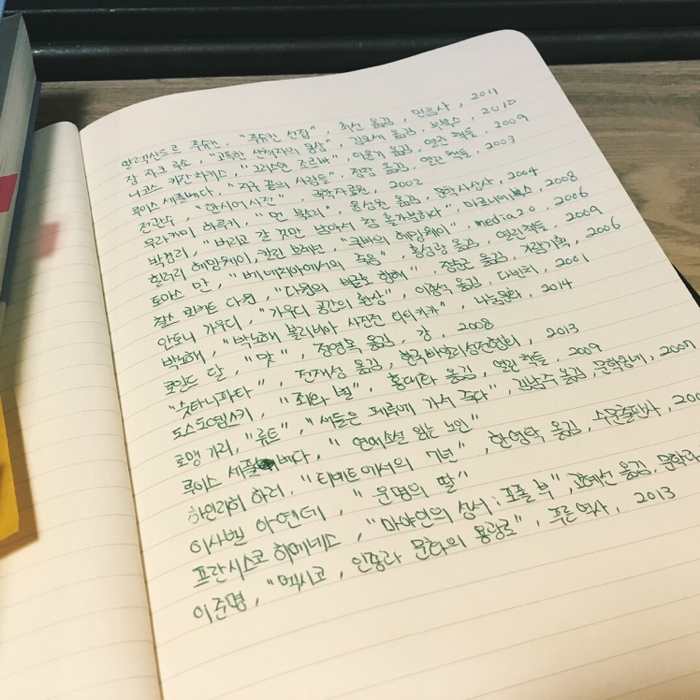 알렉산드르 푸슈킨, "푸슈킨 선집", 최선 옮김, 민음사, 2011
장 자크 루소, "고독한 산책자의 몽상", 김모세 옮김, 부북스, 2010
니코스 카잔차키스, "그리스인 조르바", 이윤기 옮김, 열린 책들, 2009
루이스 세풀베다, "지구 끝의 사람들", 정창 옮김, 열린 책들, 2003
전관수, "한시어사전", 국학자료원, 2002
무라카미 하루키, "먼 북소리", 윤성원 옮김, 문학사상사, 2004
박경리, "버리고 갈 것만 남아서 참 홀가분하다", 마로니에북스, 2008
힐러리 헤밍웨이, 칼린 브레넌, "쿠바의 헤밍웨이", media2.0, 2006
토마스 만, "베네치아에서의 죽음", 홍성광 옮김, 열린책들, 2009
찰스 로버트 다윈, "다윈의 비글호 항해", 장순근 옮김, 가람기획, 2006
안토니 가우디, "가우디 공간의 환상", 이종석 옮김, 다빈치, 2001
박노해, "박노해 볼리비아 사진전 티티카카", 나눔문화, 2014
로알드 달, "맛", 정영목 옮김, 강, 2008
"숫타니파타", 전재성 옮김, 한국빠알리성전협회, 2013
도스토옙스키, "죄와 벌", 홍대화 옮김, 열린 책들, 2009
로맹 가리, "새들은 페루에 가서 죽다", 김남주 옮김, 문학동네, 2007
루이스 세풀베다, "연애소설 읽는 노인"
하인리히 하러, "티베트에서의 7년", 한영탁 옮김, 수문출판사, 200
이사벨 아옌데, "운명의 딸"
프란시스코 히메네스, "마야인의 성서; 포폴 부", 고혜선 옮김, 문학과
이준명, "멕시코, 인종과 문화의 용광로", 푸른역사, 2013